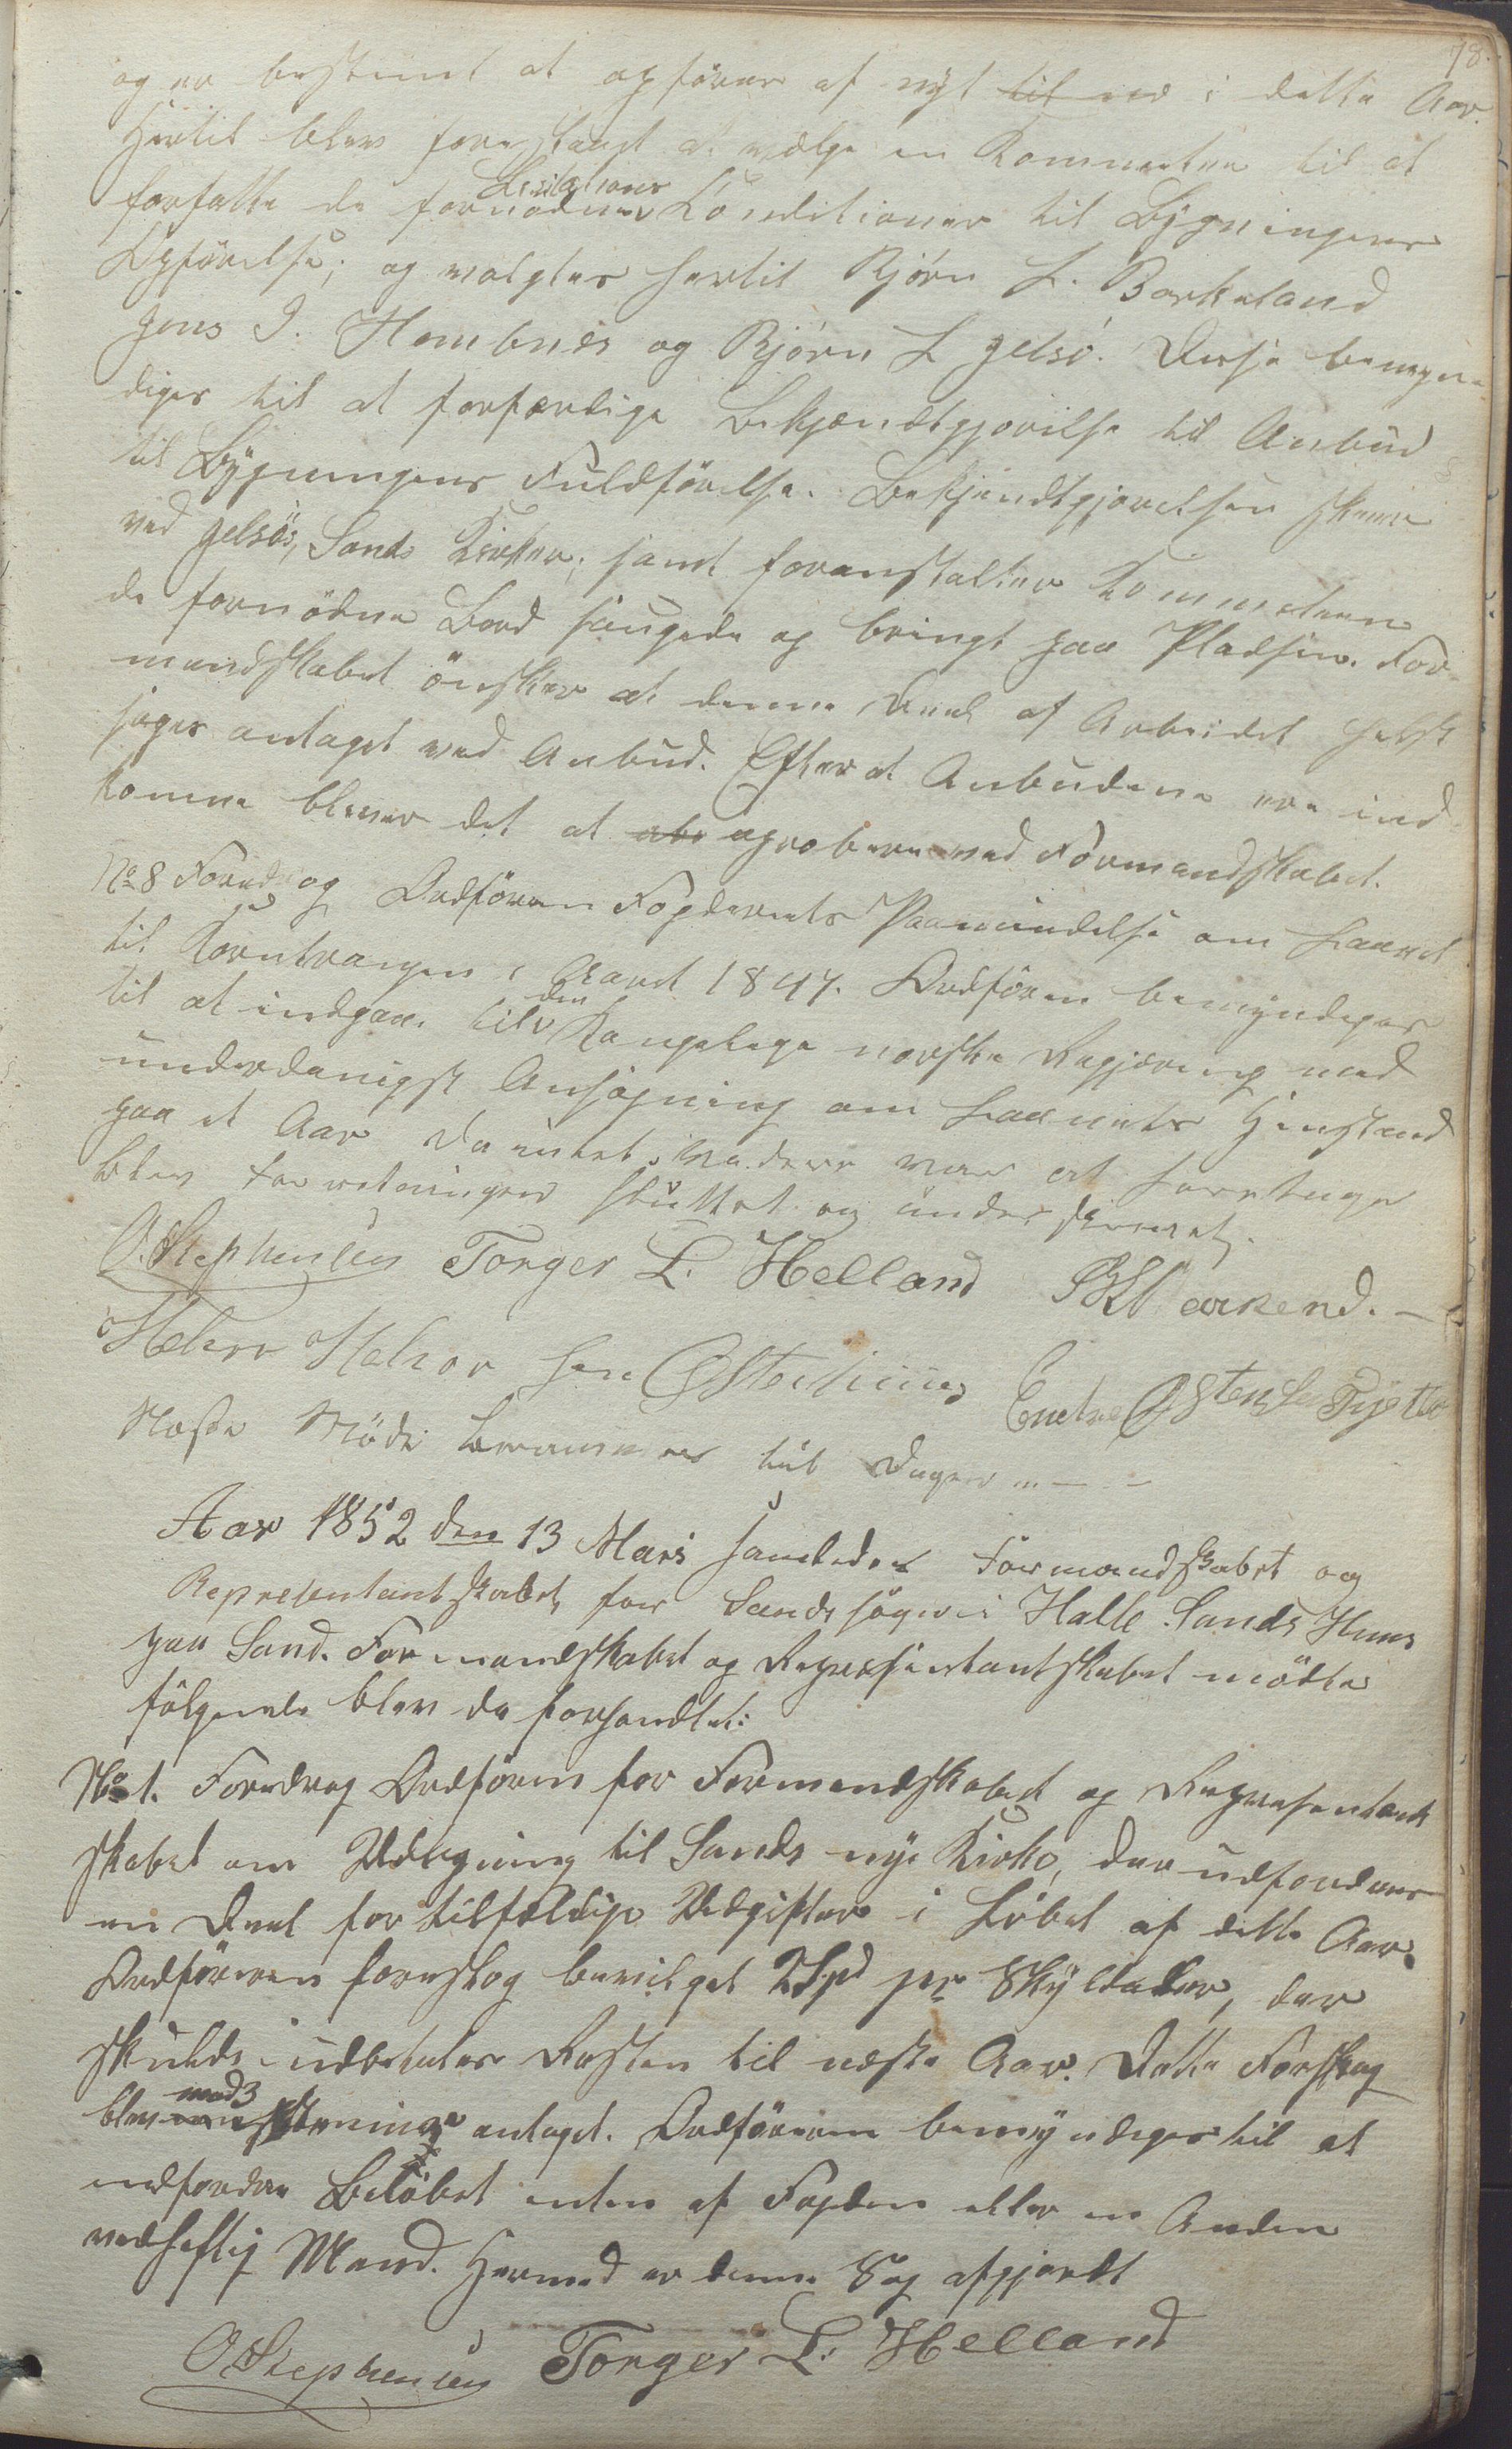 78.
og er bestemt at opföres af nyt til ned i dette Aar.
Hertil blev foreslaaet at vælge en Kommeteen til at
forfatte de fornödne Lisitations Conditioner til Bÿgningens
Opförelse; og valgtes hertil Björn L. Barkeland
Jens I. Hombnes og Björn L Jelsö. Disse bemyn-
diges til at forfærdige Bekjændtgjörelse til Anbud
til Bÿgningens Fuldförelse. Bekjendtgjörelsen skeer
ved Jelsös, Sands Kirker; samt foranstalter Kommeteen
de fornödne Bord saugede og bringt paa Pladsen. For-
mandskabet önsker at denne Deel af Arbeidet helst
søges antaget ved Anbud. Efter at Anbudene ere ind-
komne bliver det at abr aprobere ved Formandskabet.
No 8 Foredrog Ordfören Fogderiets Paamindelse om Laanet
til Korntrangen i Aaret 1847. Ordfören bemyndiges
til at indgaae til den Kongelige norske Regjering med
underdanigst Ansøgning om Laanets Henstand
paa et Aar Da intet videre var at foretage
blev forretningen sluttet og underskrevet.
O. Stephensen Torger L. Helland
Helver Helvor sen Østenstuen Endre Østensen Fyette
Næste Möde berammes til Dagen
Aar 1852 den 13 Mars samledes Formandskabet og
Representantskabet for Sands sogn i Halle Sands Huus
paa Sand. Formandskabet og Representantskabet mödte
fölgende blev da forhandlet:
No 1. Foredrog Ordfören for Formandskabet og Represantant
skabet om Udligning til Sands nye Kirke, der udfordres
en Deel for tilfældige Udgifter i Löbet af dette Aar.
Ordföreren foreslog bevilget 2 Spd pr Skÿlddaler, der
skulde udbetales Resten til næste Aar. Dette Forslag
blev med 3 Stemmer antaget. Ordföreren bemÿndiges til at
udfordre Belöbet enten af Fogden eller en Anden
vedheftig Mand. Hermed er denne Sag afgjordt
O. Stephensen Torger L. Helland